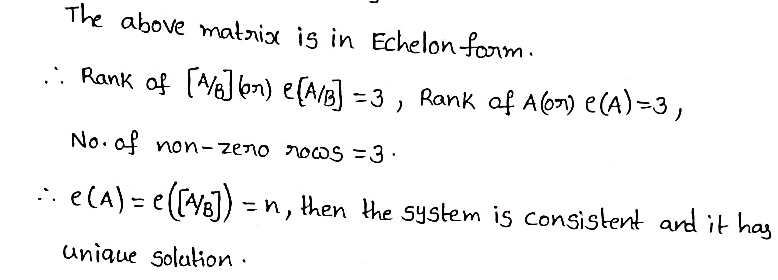 The above matrix is in Echelon form.
∴ Rank of [A/B] (or) e[A/B] = 3, Rank of A (or) e(A) = 3,
No. of non-zero rows = 3.
∴ e(A) = e([A/B]) = n, then the system is consistent and it has
unique solution.